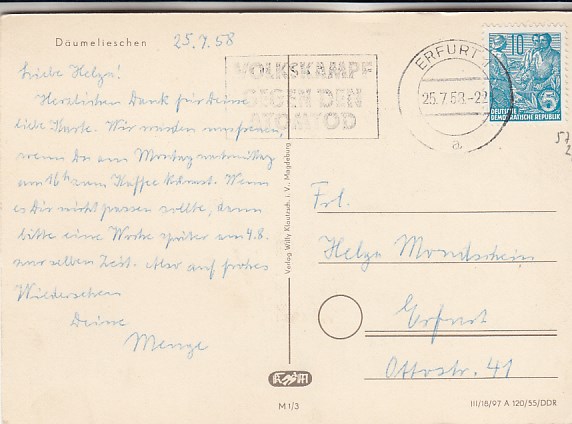 Däumelieschen
25.7.58
VOLKSKAMPF
GEGEN DEN
ATOMTOD
ERFURT
25.7.58.-22
a
10
5
DEUTSCHE
DEMOKRATISCHE REPUBLIK
Liebe Helga!
Herzlichen Dank für Deine
liebe Karte. Wir würden uns freuen,
wenn Du am Montag nachmittag
am 16h zum Kaffee kommst. Wenn
es Dir nicht passen sollte, dann
bitte eine Woche später am 4.8.
zur selben Zeit. Also auf frohes
Wiedersehen
Deine
Menge
Verlag Willy Klautzsch i. V., Magdeburg
Frl.
Helga Mondschein
Erfurt
Ottostr. 41
57
2
M 1/3
III/18/97 A 120/55/DDR